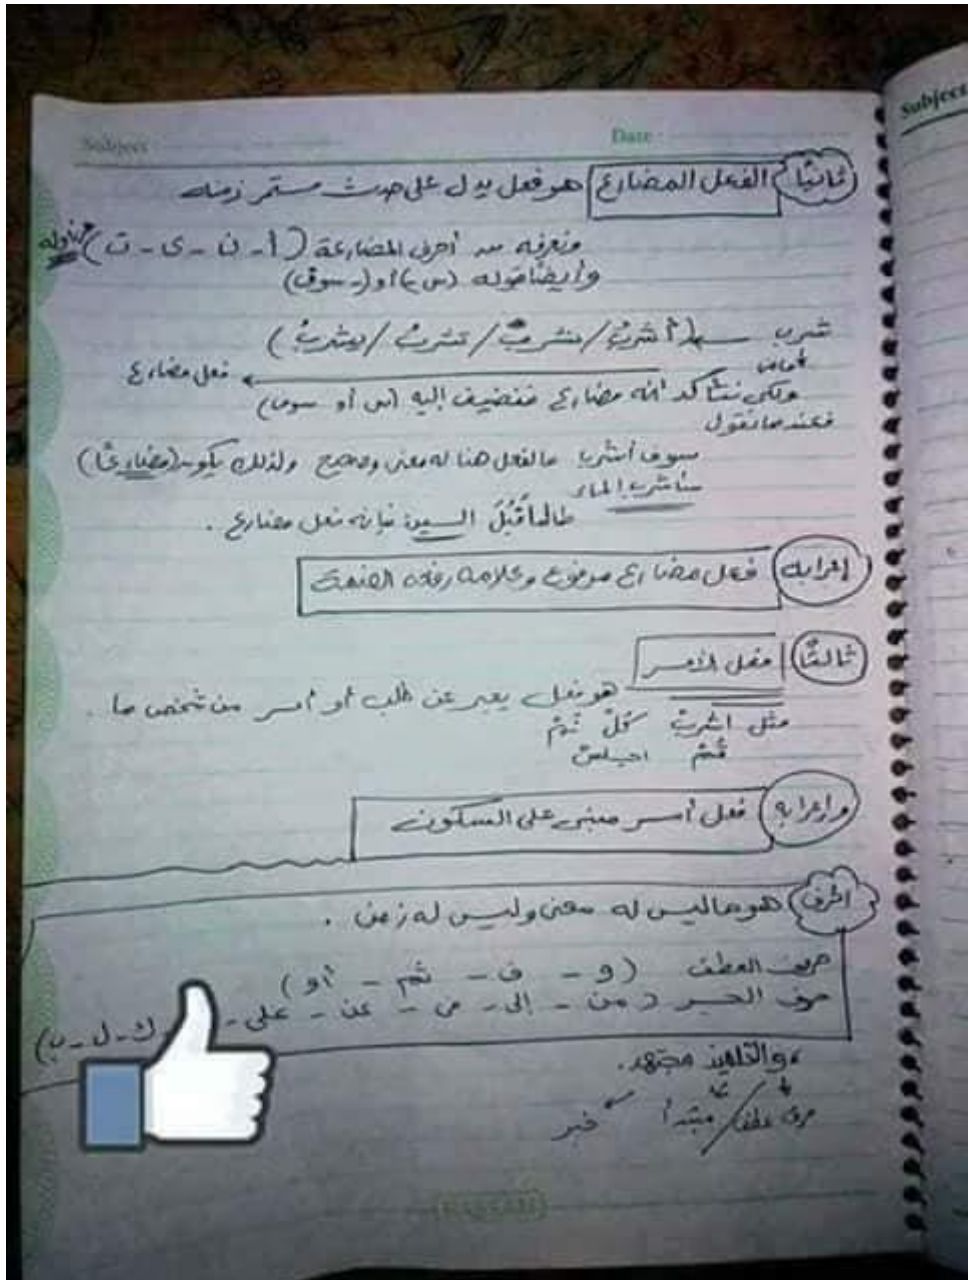 Subject
Date
Subject
ثانيًا الفعل المضارع هو فعل يدل على حدث مستمر زمنه
ونعرفه من أحرف المضارعة (أ - ن - ى - ت) أوله
وأيضا قوله (س) أو (سوف)
شرب (أشربُ / نشربُ / تشربُ / يشربُ)
ماض
فعل مضارع
ولكى نتأكد أنه مضارع فنضيف إليه (س أو سوف)
فعندما نقول
سوف أشرب فالفعل هنا له معنى وصحيح ولذلك يكون (مضارعًا)
سأشرب الماء
طالما قَبُلَ السين فإنه فعل مضارع .
إعرابه فعل مضارع مرفوع وعلامة رفعه الضمة
ثالثًا فعل الأمر
هو فعل يعبر عن طلب أو أمر من شخص ما .
مثل اشربْ كُلْ نَمْ
قُمْ اجلسْ
وإعرابه فعل أمر مبنى على السكون
الحرف هو ما ليس له معنى وليس له زمن .
حروف العطف (و - ف - ثم - أو)
حروف الجر (من - إلى - فى - عن - على - ك - ل - ب)
والتلميذ مجتهد.
حرف عطف / مبتدأ خبر